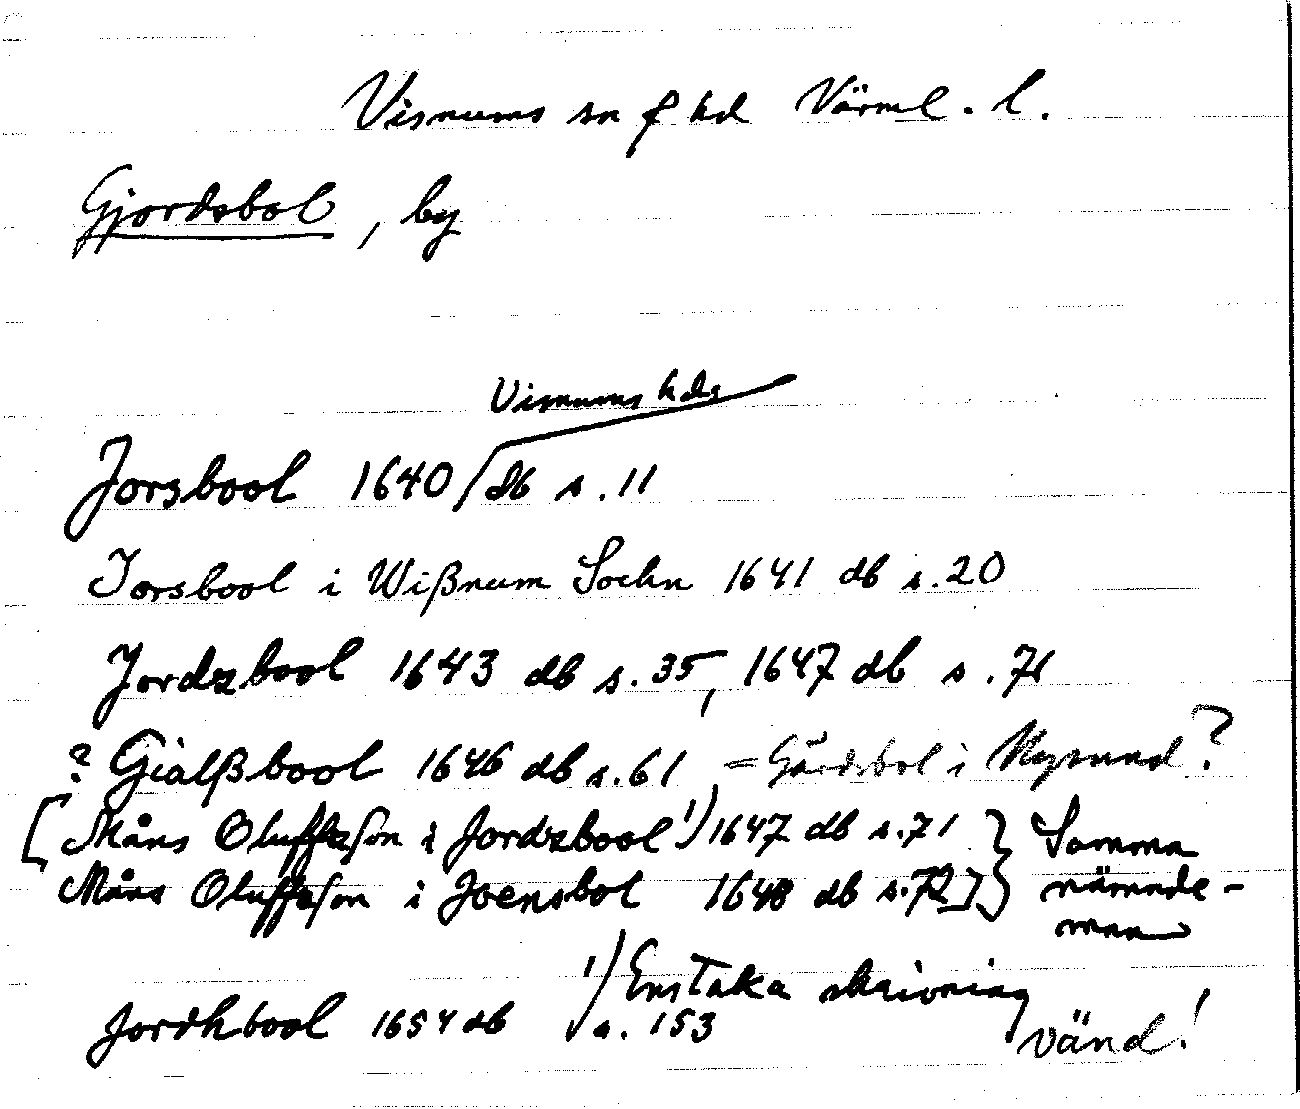 Visnums sn f hd Värml. l.
Gjordsbol, by
Visnums hds
Jorsbool 1640 db s. 11
Jorsbool i Wißnum Sochn 1641 db s. 20
Jordzbool 1643 db s. 35, 1647 db s. 71
? Gialßbool 1646 db s. 61 = Gårdsbol i Nysund?
[Måns Oluffzson i Jordzbool 1) 1647 db s. 71 } Samma
Måns Oluffzson i Joensbol 1648 db s. 72] nämnde-
man
1) Enstaka skrivning
Jordhbool 1654 db s. 153
vänd!